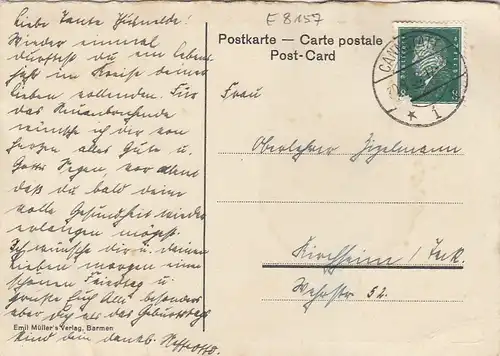 Liebe Tante Hildmelde!
Wieder einmal
durftest du ein Lebens-
jahr im Kreise deiner
Lieben vollenden. Für
das Neuanbrechende
wünsche ich dir von
Herzen alles Gute u.
Gottes Segen, vor allem
daß du bald deine
volle Gesundheit wieder
erlangen mögest.
Ich wünsche dir u. deinen
Lieben morgen einen
schönen Feiertag u.
grüße Euch Alle besonders
aber dich als das Geburtstags
kind dein dankb. Neffe Otto.
Emil Müller's Verlag, Barmen
E 8157
Postkarte — Carte postale
Post-Card
CANNSTATT
* 1
Frau
Oberlehrer Zigelmann
Kirchheim / Teck.
Wehrstr 52.